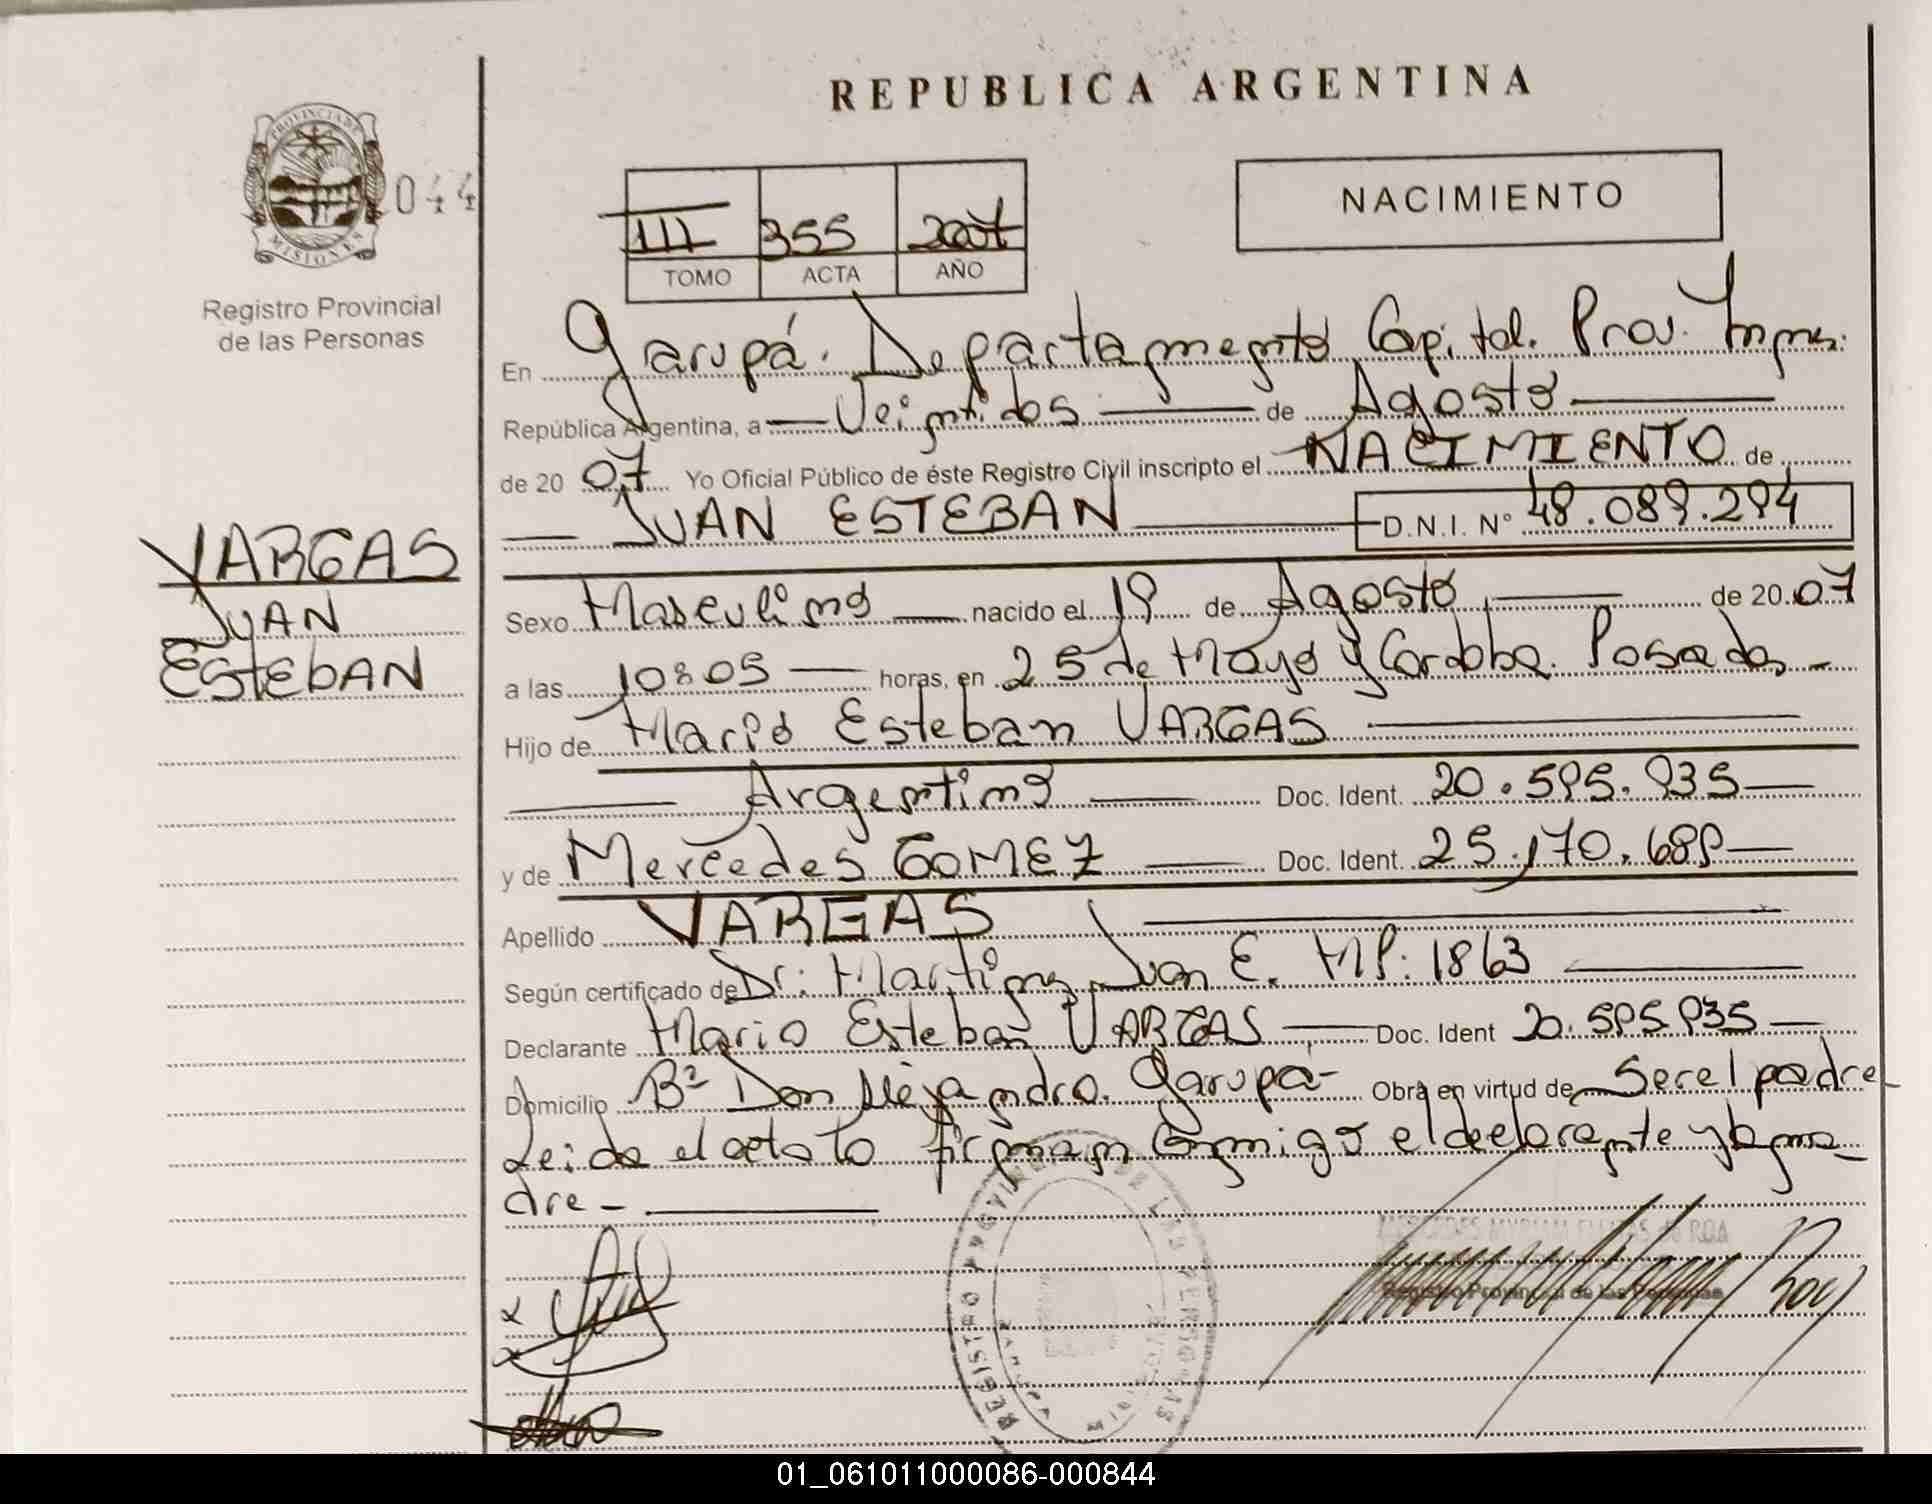 REPUBLICA ARGENTINA
PROVINCIA DE
MISIONES
044
Registro Provincial
de las Personas
III 355 2007
TOMO ACTA AÑO
NACIMIENTO
En Garupá. Departamento Capital. Prov. Mnes.
República Argentina, a Veintidos de Agosto
de 20 07 Yo Oficial Público de éste Registro Civil inscripto el NACIMIENTO de
JUAN ESTEBAN D.N.I. Nº 48.089.294
VARGAS
JUAN
ESTEBAN
Sexo Masculino nacido el 19 de Agosto de 20 07
a las 10:05 horas, en 25 de Mayo y Cordoba. Posadas
Hijo de Mario Esteban VARGAS
Argentino Doc. Ident. 20.595.935
y de Mercedes GOMEZ Doc. Ident. 25.170.689
Apellido VARGAS
Según certificado de Dr: Martinez Juan E. MP: 1863
Declarante Mario Esteban VARGAS Doc. Ident 20.595.935
Domicilio Bº Don Alejandro. Garupá- Obra en virtud de Ser el padre-
Leida el acta la firman Conmigo el declarante y la ma-
dre-
REGISTRO PROVINCIAL DE LAS PERSONAS
GARUPA
Registro Provincial de las Personas
01_061011000086-000844